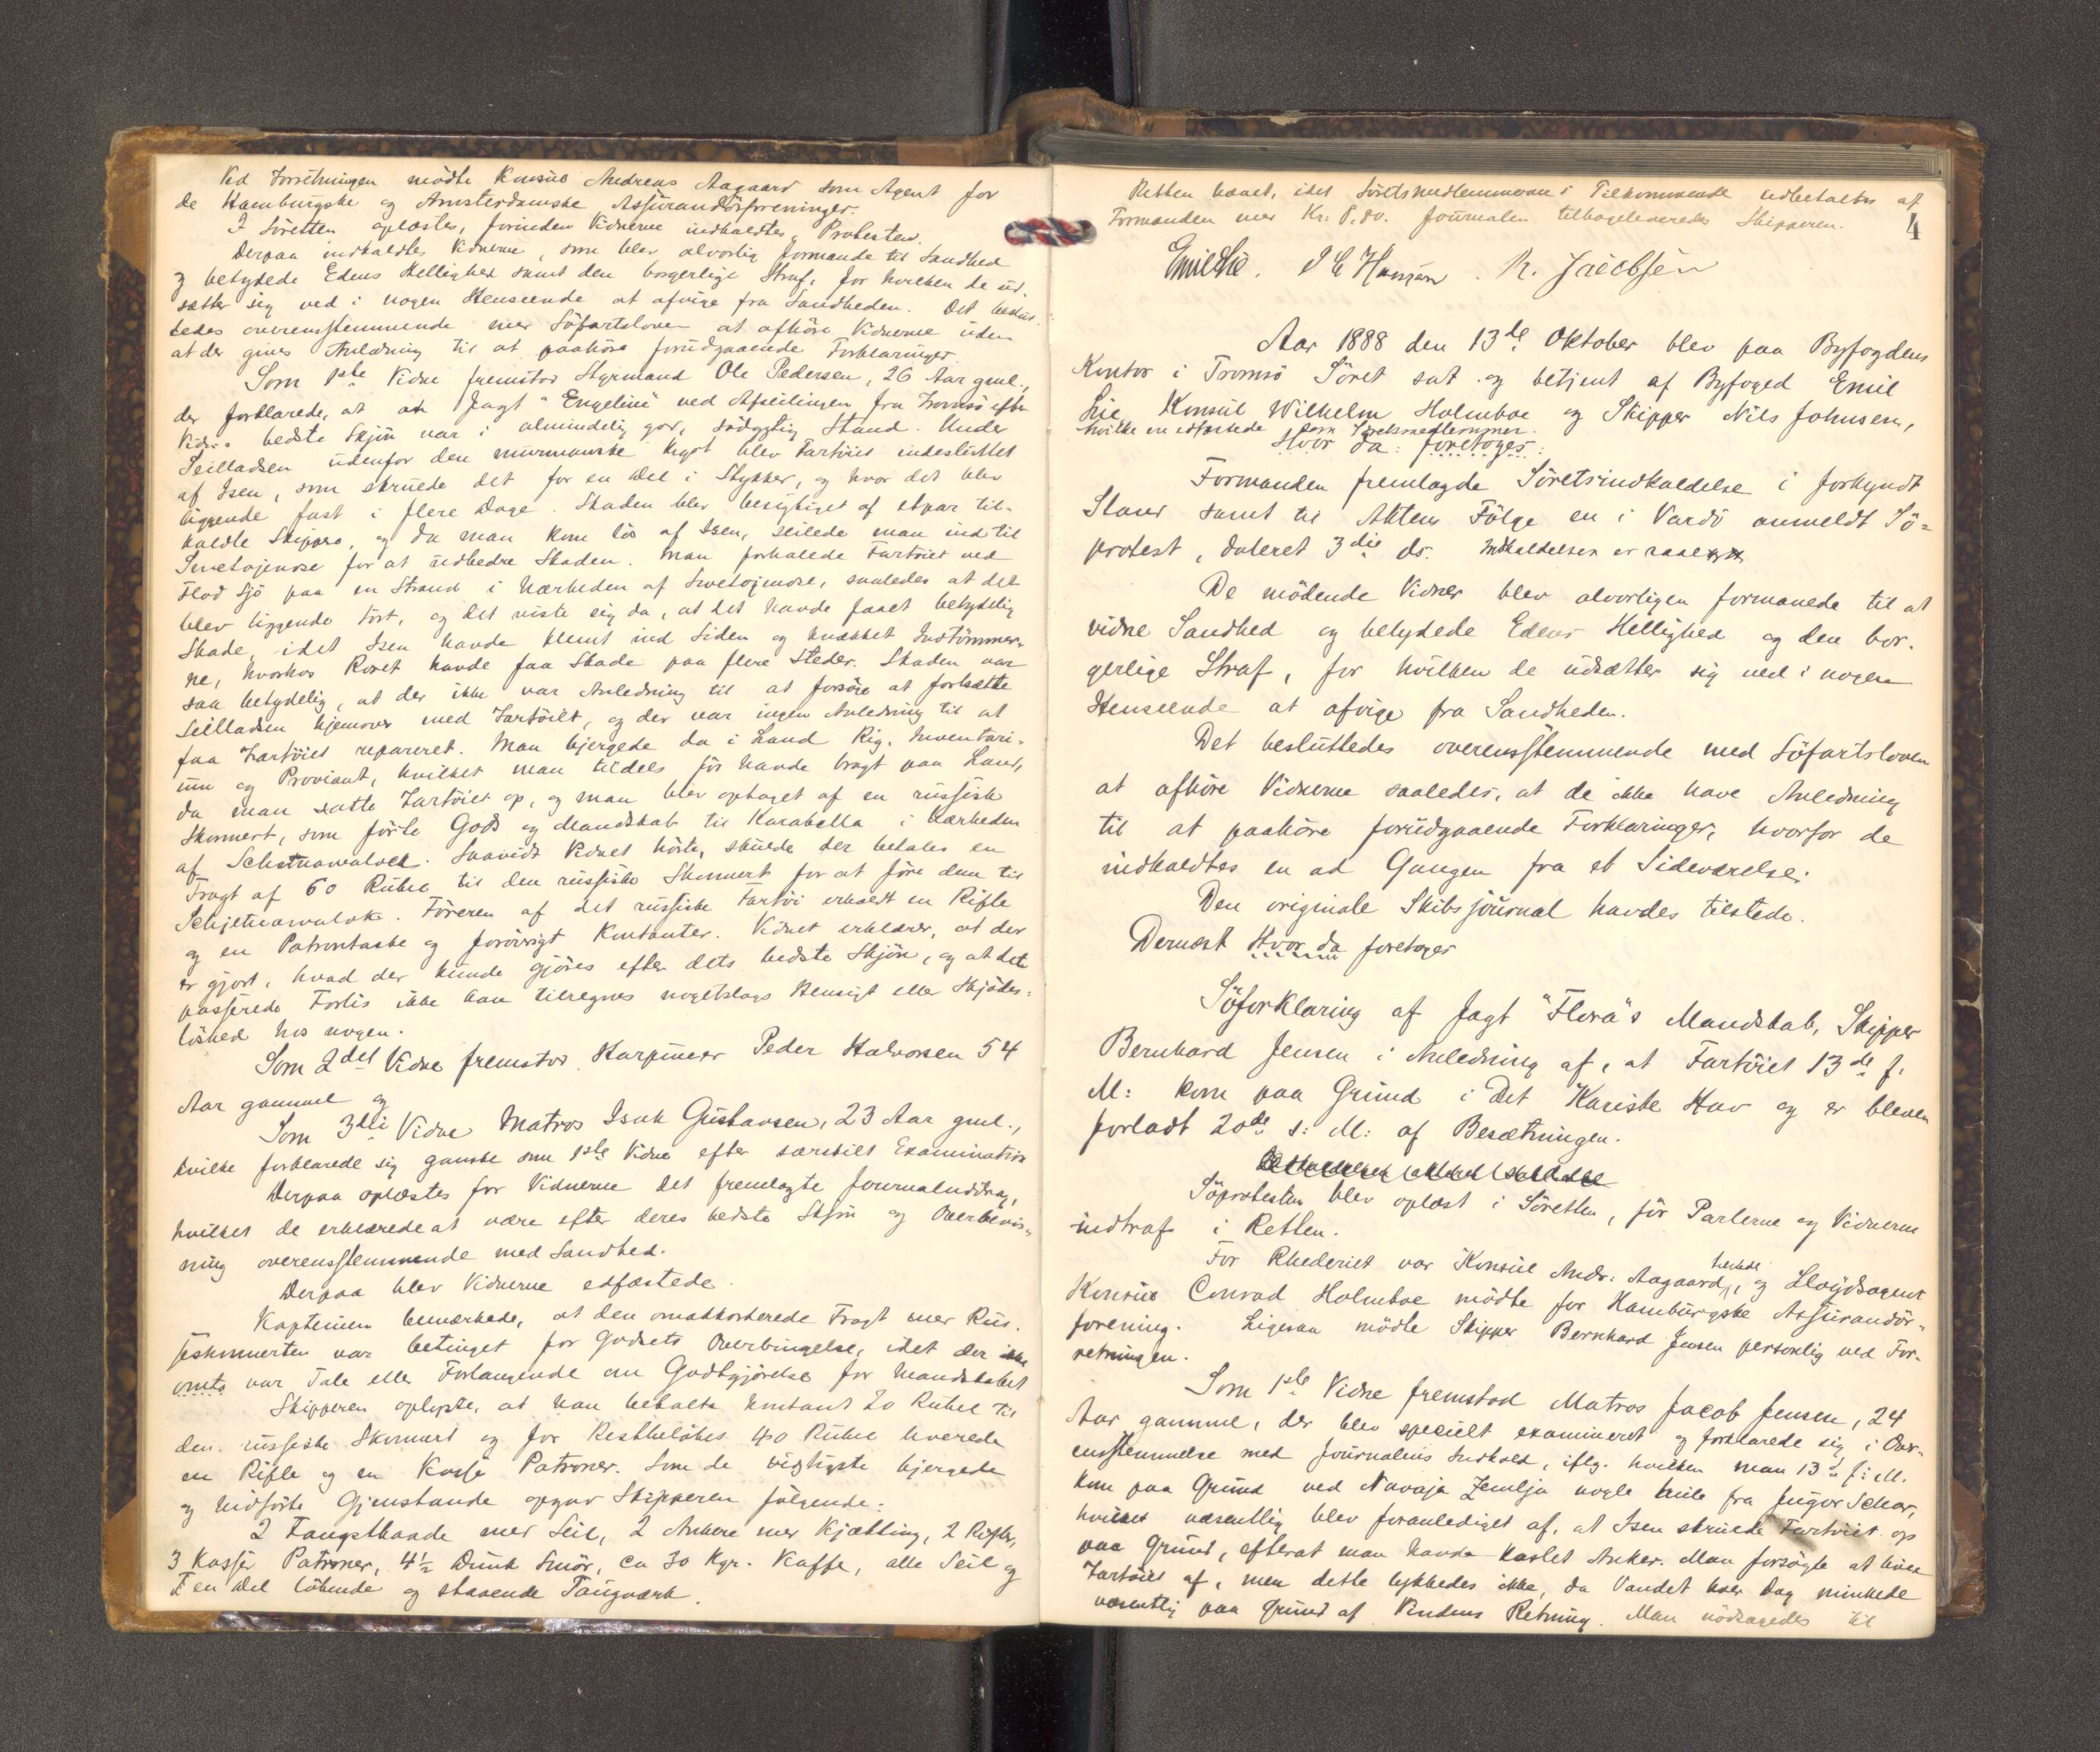 Ved Forretningen mödte Konsul Andreas Aagaard som Agent for
de Hamburgske og Amsterdamske Assurandörforeninger.
I Söretten oplæstes, forinden Vidnerne indkaldtes, Protesten.
Derpaa indkaldtes Vidnerne, som blev alvorlig formanede til Sandhed
og betydede Edens Hellighed samt den borgerlige Straf, for hvilken de ud-
sætter sig ved i nogen Henseende at afvige fra Sandheden. Det beslut-
tedes overensstemmende med Söfartsloven at afhöre Vidnerne uden
at der gives Anledning til at paahöre forudgaaende Forklaringer.
Som 1ste Vidne fremstod Styrmand Ole Pedersen, 26 Aar gml.,
der forklarede, at Jagt "Engeline" ved Afseilingen fra Tromsö efter
Vidnets bedste Skjön var i almindelig god, södygtig Stand. Under
Seilladsen udenfor den murmanske Kyst blev Fartöiet indesluttet
af Isen, som skruede det for en Del i Stykker, og hvor det blev
liggende fast i flere Dage. Skaden blev besigtiget af etpar til-
kaldte Skippere, og da man kom lös af Isen, seilede man ind til
for at udbedre Skaden. Man forhalede Fartöiet ved
Flod Sjö paa en Strand i Nærheden af, saaledes at det
blev liggende tört, og det viste sig da, at det havde faaet betydelig
Skade, idet Isen havde klemt ind Siden og knækket Indtömmer-
ne, hvorhos Roret havde faa Skade paa flere Steder. Skaden var
saa betydelig, at der ikke var Anledning til at forsöge at fortsætte
Seilladsen hjemover med Fartöiet, og der var ingen Anledning til at
faa Fartöiet repareret. Man bjergede da i Land Rig, Inventari-
um og Proviant, hvilket man tildels för havde bragt paa Land,
da man satte Fartöiet op, og man blev optaget af en russisk
Skonnert, som förte Gods og Mandskab til Karabella i Nærheden
af. Saavidt Vidnet hörte, skulde der betales en
Fragt af 60 Rubel til den russiske Skonnert for at före dem til
. Föreren af det russiske Fartöi erholdt en Rifle
og en Patrontaske og forövrigt Kontanter. Vidnet erklærer, at der
er gjort, hvad der kunde gjöres efter dets bedste Skjön, og at det
passerede Forlis ikke kan tilregnes nogetslags Hensigt eller Skjödes-
löshed hos nogen.
Som 2det Vidne fremstod Harpuner Peder Halvorsen 54
Aar gammel og
Som 3die Vidne Matros Isak Gustavsen, 23 Aar gml.,
hvilke forklarede sig ganske som 1ste Vidne efter særskilt Examination
Derpaa oplæstes for Vidnerne det fremlagte Journaluddrag,
hvilket de erklærede at være efter deres bedste Skjön og Overbevis-
ning overensstemmende med Sandhed.
Derpaa blev Vidnerne edfæstede.
Kapteinen bemærkede, at den omakkorderede Fragt med Rus-
seskonnerten var betinget for Godsets Overbringelse, idet der ikke
var Tale eller Forlangende om Godtgjörelse for Mandskabet
Skipperen oplyste, at han betalte kontant 20 Rubel til
den russiske Skonnert og for Restbelöbet 40 Rubel leverede
en Rifle og en Kasse Patroner. Som de vigtigste bjergede
og hidförte Gjenstande opgav Skipperen fölgende:
2 Fangstbaade med Seil, 2 Ankere med Kjætting, 2 Rifler,
3 Kasser Patroner, 4½ Dunk Smör, ca 30 Kgr. Kaffe, alle Seil og
en Del löbende og staaende Tougværk.
4
Retten hævet, idet Söretsmedlemmerne i Tilkommende udbetaltes af
Formanden med Kr: Journalen tilbageleveredes Skipperen.
Emil Lie. I E Hansen N. Jacobsen
Aar 1888 den 13de Oktober blev paa Byfogdens
Kontor i Tromsö Söret sat og betjent af Byfoged Emil
Lie, Konsul Wilhelm Holmboe og Skipper Nils Johnsen,
hvilke ere edfæstede som Söretsmedlemmer.
Hvor da: foretoges:
Formanden fremlagde Söretsindkaldelse i forkyndt
Stand samt til Aktens Fölge en i Vardö anmeldt Sö-
protest, dateret 3die ds. Indkaldelsen er saal.
De mödende Vidner blev alvorligen formanede til at
vidne Sandhed og betydede Edens Hellighed og den bor-
gerlige Straf, for hvilken de udsætter sig ved i nogen
Henseende at afvige fra Sandheden.
Det besluttedes overensstemmende med Söfartsloven
at afhöre Vidnerne saaledes, at de ikke have Anledning
til at paahöre forudgaaende Forklaringer, hvorfor de
indkaldtes en ad Gangen fra et Sideværelse.
Den originale Skibsjournal havdes tilstede.
Dernæst Hvor da foretoges
Söforklaring af Jagt "Flora"s Mandskab, Skipper
Bernhard Jensen i Anledning af, at Fartöiet 13de f.
M: kom paa Grund i Det Kariske Hav og er bleven
forladt 20de s: M: af Besætningen.
Söprotesten blev oplæst i Söretten, för Parterne og Vidnerne
indtraf i Retten.
For Rhederiet var Konsul Andr: Aagaard tilstede, og Lloydsagent
Konsul Conrad Holmboe mödte for Hamburgske Assurandör-
forening. Ligesaa mödte Skipper Bernhard Jensen personlig ved For-
retningen.
Som 1ste Vidne fremstod Matros Jacob Jensen, 24
Aar gammel, der blev specielt examineret og forklarede sig i Over-
ensstemmelse med Journalens Indhold, iflg. hvilken man 13de f: M.
kom paa Grund ved Novaja Zemlja nogle Mile fra Jugor Schar,
hvilket væsentlig blev foranlediget af, at Isen skruede Fartöiet op
paa Grund, efterat man havde kastet Anker. Man forsögte at hive
Fartöiet af, men dette lykkedes ikke, da Vandet hver Dag minkede
væsentlig paa Grund af Vindens Retning. Man nödsagedes til